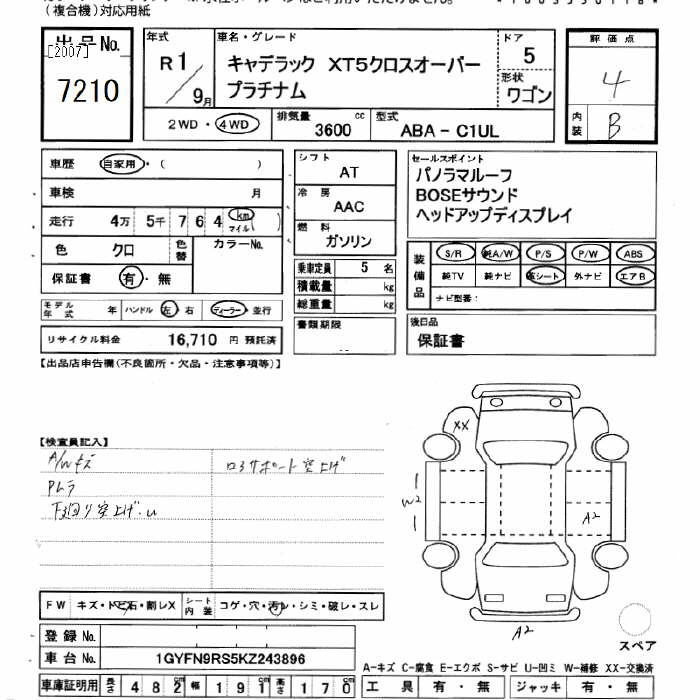 (複合機)対応用紙
出品No.
[2007]
7210
年式 R1/9月
車名・グレード
キャデラック XT5クロスオーバー
プラチナム
ドア 5
形状 ワゴン
2WD・4WD
排気量 3600 cc
型式 ABA - C1UL
評価点 4
内装 B
車歴 自家用・( )
車検 月
走行 4万 5千 7 6 4 km マイル ( )
色 クロ 色替 カラーNo.
保証書 有・無
モデル年式 年 ハンドル 左 右 ディーラー・並行
リサイクル料金 16,710 円 預託済
シフト AT
冷房 AAC
燃料 ガソリン
乗車定員 5 名
積載量 kg
総重量 kg
書類期限
セールスポイント
パノラマルーフ
BOSEサウンド
ヘッドアップディスプレイ
装備品
S/R 純A/W P/S P/W ABS
純TV 純ナビ 革シート 外ナビ エアB
ナビ型番:
後日品
保証書
【出品店申告欄(不良箇所・欠品・注意事項等)】
【検査員記入】
A/Wキズ
Pムラ
下回り突上げ.U
ロアサポート突上げ
XX
W2
A2
A2
スペア
FW キズ・トビ石・割レX シート内装 コゲ・穴・汚レ・シミ・破レ・スレ
登録No.
車台No. 1GYFN9RS5KZ243896
車庫証明用 長さ 482 幅 191 高さ 170
A-キズ C-腐食 E-エクボ S-サビ U-凹ミ W-補修 XX-交換済
工具 有・無 ジャッキ 有・無